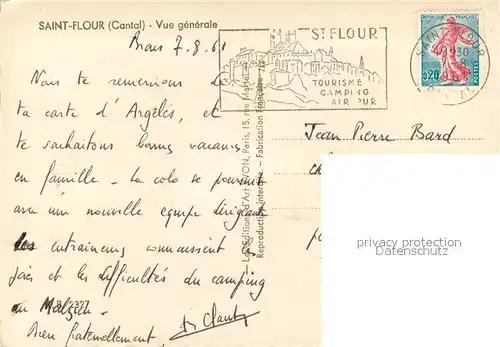 SAINT-FLOUR (Cantal) - Vue générale
7.8.61
Nous te remercions de
ta carte d'Argelès, et
te souhaitons bonnes vacances
en famille - La colo se poursuit
avec une nouvelle équipe dirigeante
les entraineurs connaissent les
joies et les difficultés du camping
en
Bien fraternellement
Jean Pierre Bard
ST FLOUR
TOURISME
CAMPING
AIR PUR
REPUBLIQUE FRANÇAISE
0,20
POSTES
SAINT-FLOUR
Les Editions d'Art YVON, Paris, 15, rue Martel
Reproduction interdite. - Fabrication Française
privacy protection
Datenschutz